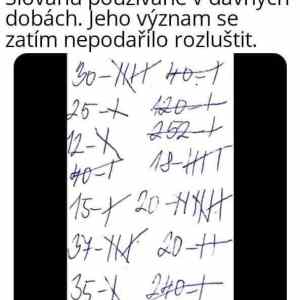 Slovanů používané v dávných
dobách. Jeho význam se
zatím nepodařilo rozluštit.
30- 40-
25- 120-
12- 252-
40- 18-
15- 20-
37- 20-
35- 240-